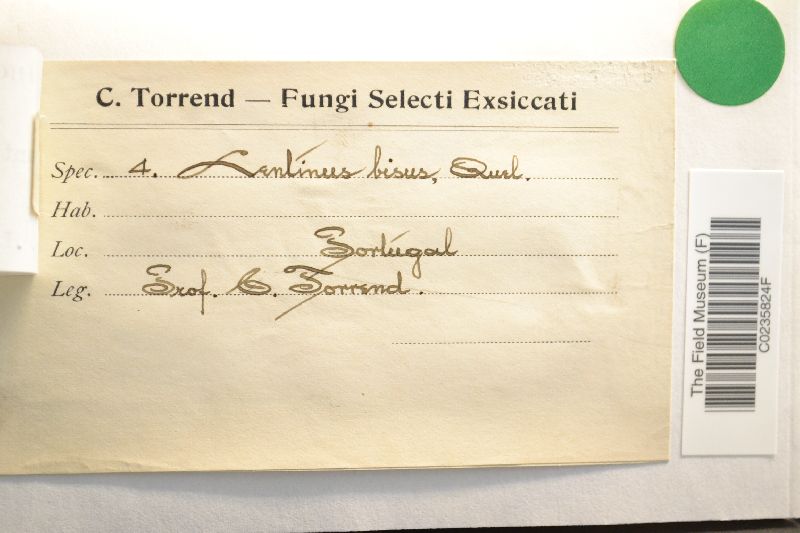 C. Torrend — Fungi Selecti Exsiccati
Spec. 4. Lentinus bisus, Quel.
Hab.
Loc. Portugal
Leg. Prof. C. Torrend.
The Field Museum (F)
C0235824F